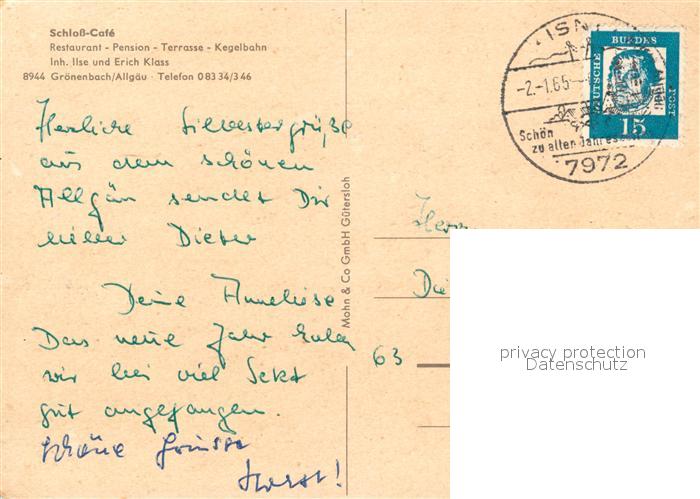 Schloß-Café
Restaurant - Pension - Terrasse - Kegelbahn
Inh. Ilse und Erich Klass
8944 Grönenbach/Allgäu · Telefon 0 83 34/3 46
Herzliche Silvestergrüße
aus dem schönen
Allgäu sendet Dir
lieber Dieter
Deine Anneliese
Das neue Jahr haben
wir bei viel Sekt
gut angefangen.
schöne Grüsse
Horst!
Mohn & Co GmbH Gütersloh
ISN
-2.-1.65
Schön
zu allen Jahres
7972
DEUTSCHE BUNDES POST
15
Herrn
Die
63
privacy protection
Datenschutz